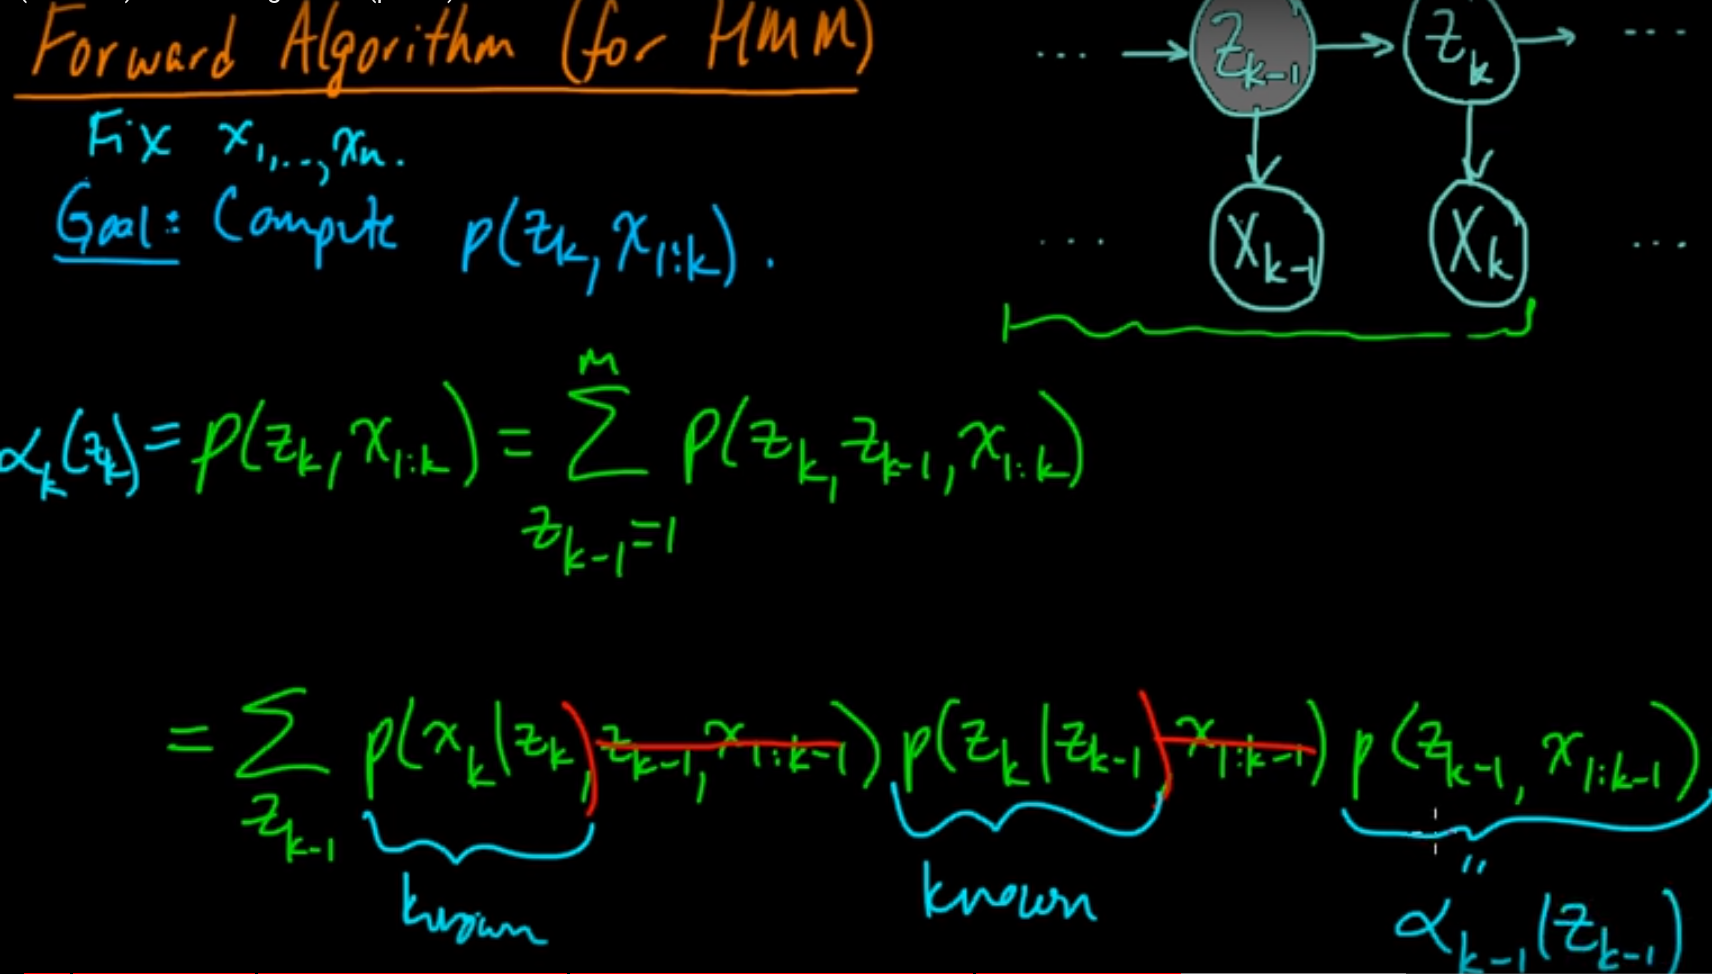 Forward Algorithm (for HMM)
... → Z_{k-1} → Z_k → ...
Fix x_1,...,x_n.
Goal: Compute p(z_k, x_{1:k}).
... X_{k-1} X_k ...
α_k(z_k) = p(z_k, x_{1:k}) = ∑_{z_{k-1}=1}^{m} p(z_k, z_{k-1}, x_{1:k})
= ∑_{z_{k-1}} p(x_k|z_k, z_{k-1}, x_{1:k-1}) p(z_k|z_{k-1}, x_{1:k-1}) p(z_{k-1}, x_{1:k-1})
known known "
α_{k-1}(z_{k-1})